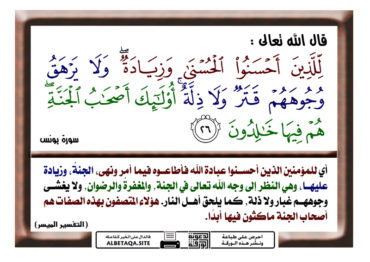 قال الله تعالى :
لِّلَّذِينَ أَحْسَنُوا۟ ٱلْحُسْنَىٰ وَزِيَادَةٌۖ وَلَا يَرْهَقُ
وُجُوهَهُمْ قَتَرٌ وَلَا ذِلَّةٌۚ أُو۟لَٰٓئِكَ أَصْحَٰبُ ٱلْجَنَّةِۖ
هُمْ فِيهَا خَٰلِدُونَ ٢٦
سورة يونس
أي للمؤمنين الذين أحسنوا عبادة الله فأطاعوه فيما أمر ونهى، الجنة، وزيادة
عليها، وهي النظر إلى وجه الله تعالى في الجنة، والمغفرة والرضوان، ولا يغشى
وجوههم غبار ولا ذلة، كما يلحق أهل النار. هؤلاء المتصفون بهذه الصفات هم
أصحاب الجنة ماكثون فيها أبدًا.
( التفسير الميسر )
احرص على طباعة
ونشر هذه الورقة
ALBETAQA.SITE